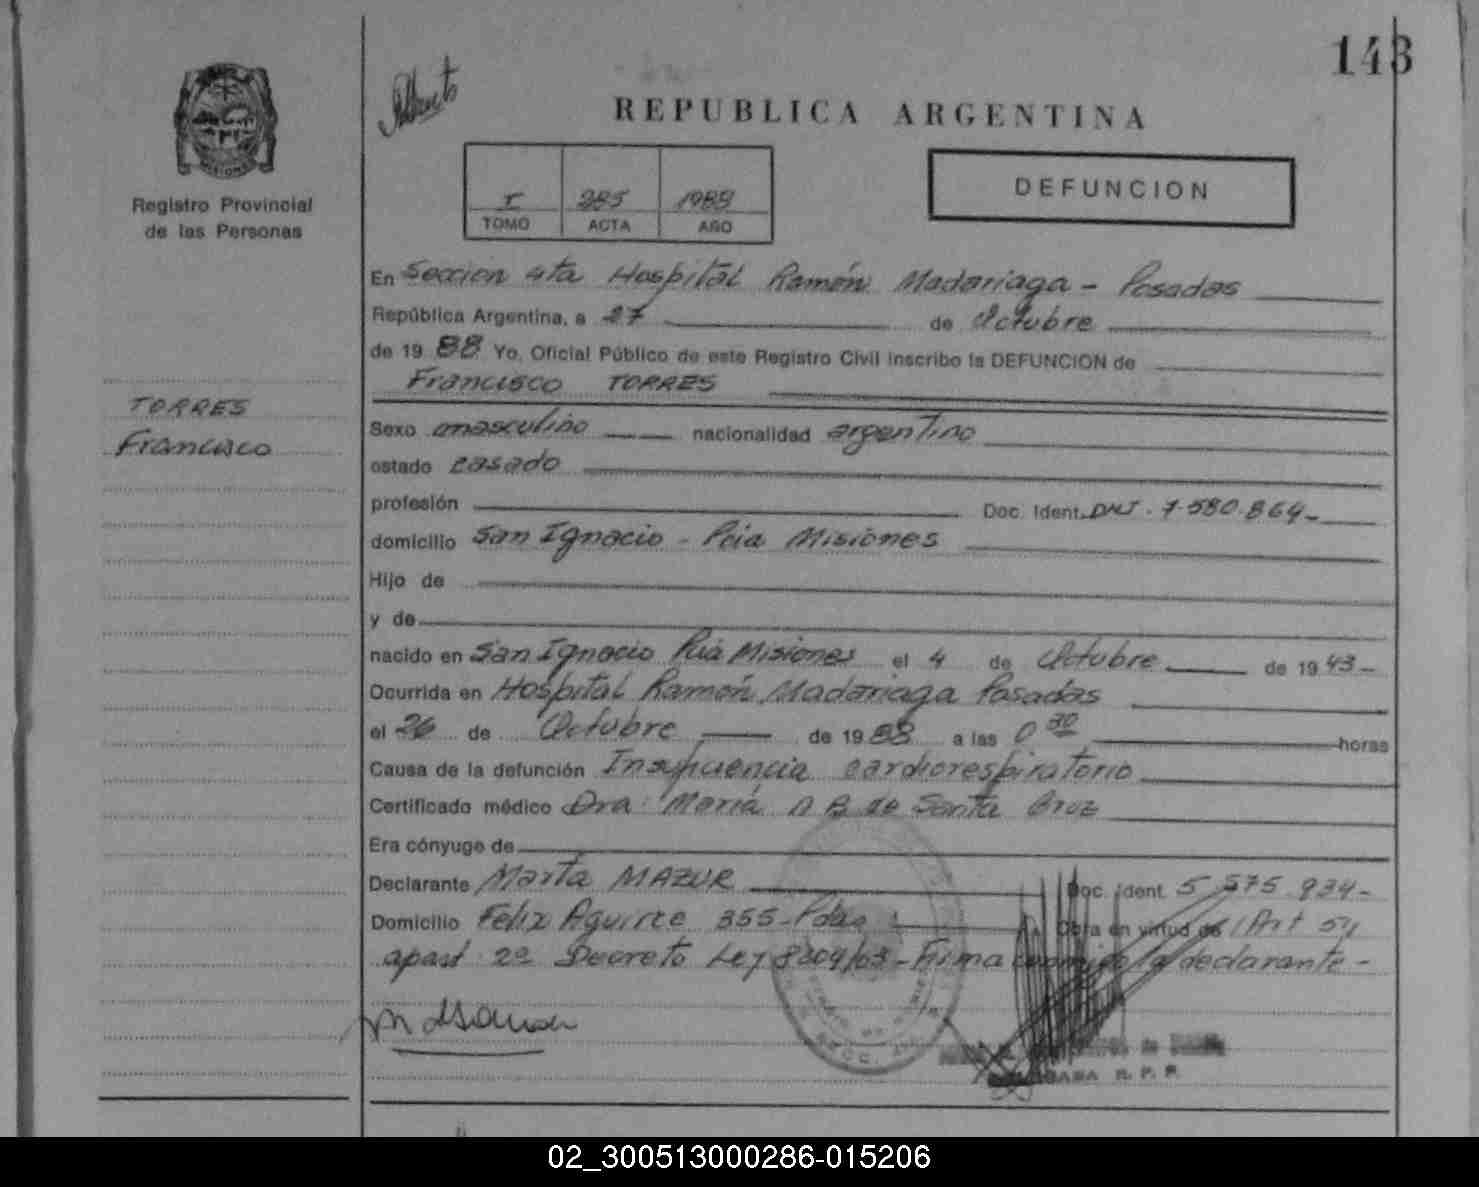 143
REPUBLICA ARGENTINA
DEFUNCION
I 285 1988
TOMO ACTA AÑO
Registro Provincial
de las Personas
TORRES
Francisco
En Seccion 4ta Hospital Ramón Madariaga - Posadas
República Argentina, a 27 de Octubre
de 19 88 Yo, Oficial Público de este Registro Civil inscribo la DEFUNCION de
Francisco TORRES
Sexo masculino nacionalidad argentino
estado casado
profesión Doc. Ident. DNI. 7.580.864-
domicilio San Ignacio - Pcia Misiones
Hijo de
y de
nacido en San Ignacio Pcia Misiones el 4 de Octubre de 19 43-
Ocurrida en Hospital Ramón Madariaga Posadas
el 26 de Octubre de 19 88 a las 0 30 horas
Causa de la defunción Insuficiencia cardiorespiratorio
Certificado médico Dra. María B de Santa Cruz
Era cónyuge de
Declarante Marta MAZUR Doc. Ident. 5 575 934-
Domicilio Felix Aguirre 355- Pdas Obra en virtud de Art 54
apart 2º Decreto Ley 8204/63- Firma conmigo la declarante-
R. P. P.
02_300513000286-015206